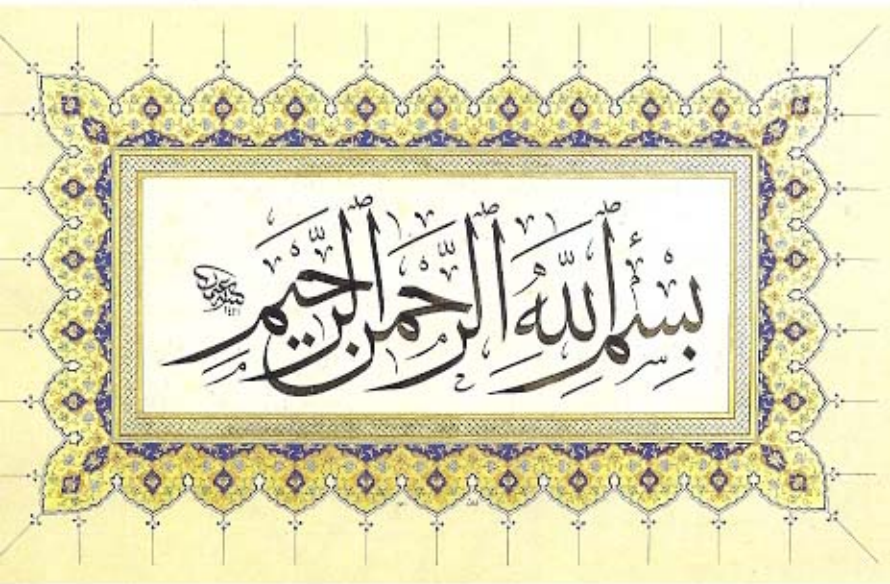 بِسْمِ اللهِ الرَّحْمنِ الرَّحِيمِ
١٤٢١